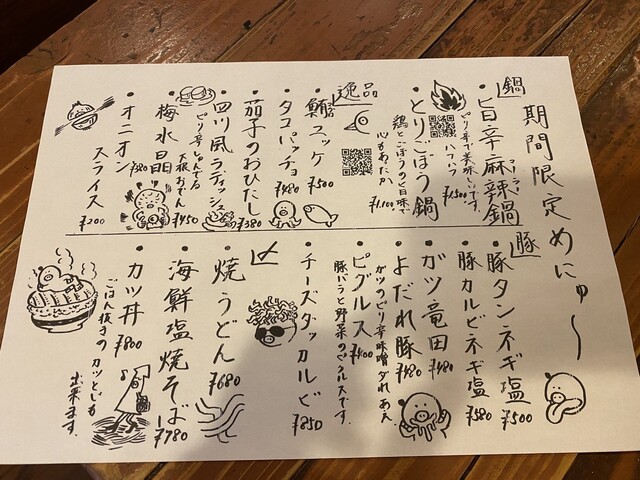 期間限定めにゅ〜
鍋
・旨辛麻辣鍋
マーラー
ピリ辛で美味しいです。
ハフハフ
¥1,500
・とりごぼう鍋
鶏とごぼうの旨味で
心もあたか
¥1,100
逸品
・鮪ユッケ ¥500
・タコパッチョ ¥480
・茄子のおひたし ¥380
・四川風ラディッシュ
ピリ辛
大根おでん
¥450
・梅水晶 ¥380
・オニオン
スライス ¥200
豚
・豚タンネギ塩 ¥500
・豚カルビネギ塩 ¥580
・ガツ竜田 ¥480
・よだれ豚 ¥480
ガツのピリ辛味噌ダれあえ
・ピグルス ¥400
豚バラと野菜のピクルスです。
・チーズダッカルビ ¥850
〆
・焼うどん ¥680
・海鮮塩焼そば ¥780
・カツ丼 ¥800
ごはん抜きのカツとじも
出来ます。